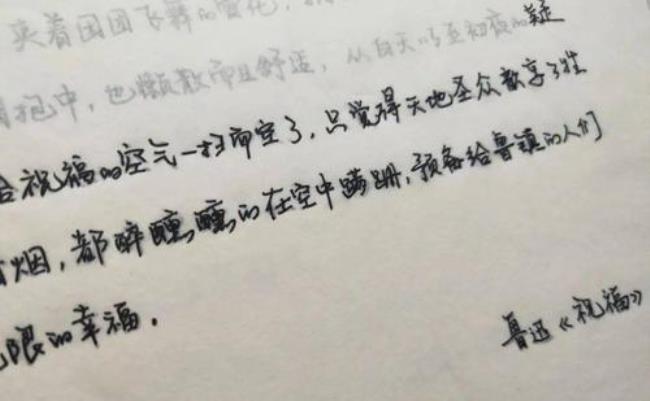 夹着团团飞舞的雪花，
拥抱中，也懒散而且舒适，从白天以至初夜的疑
给祝福的空气一扫而空了，只觉得天地圣众歆享了牲
烟，都醉醺醺的在空中蹒跚，预备给鲁镇的人们
限的幸福．
鲁迅《祝福》